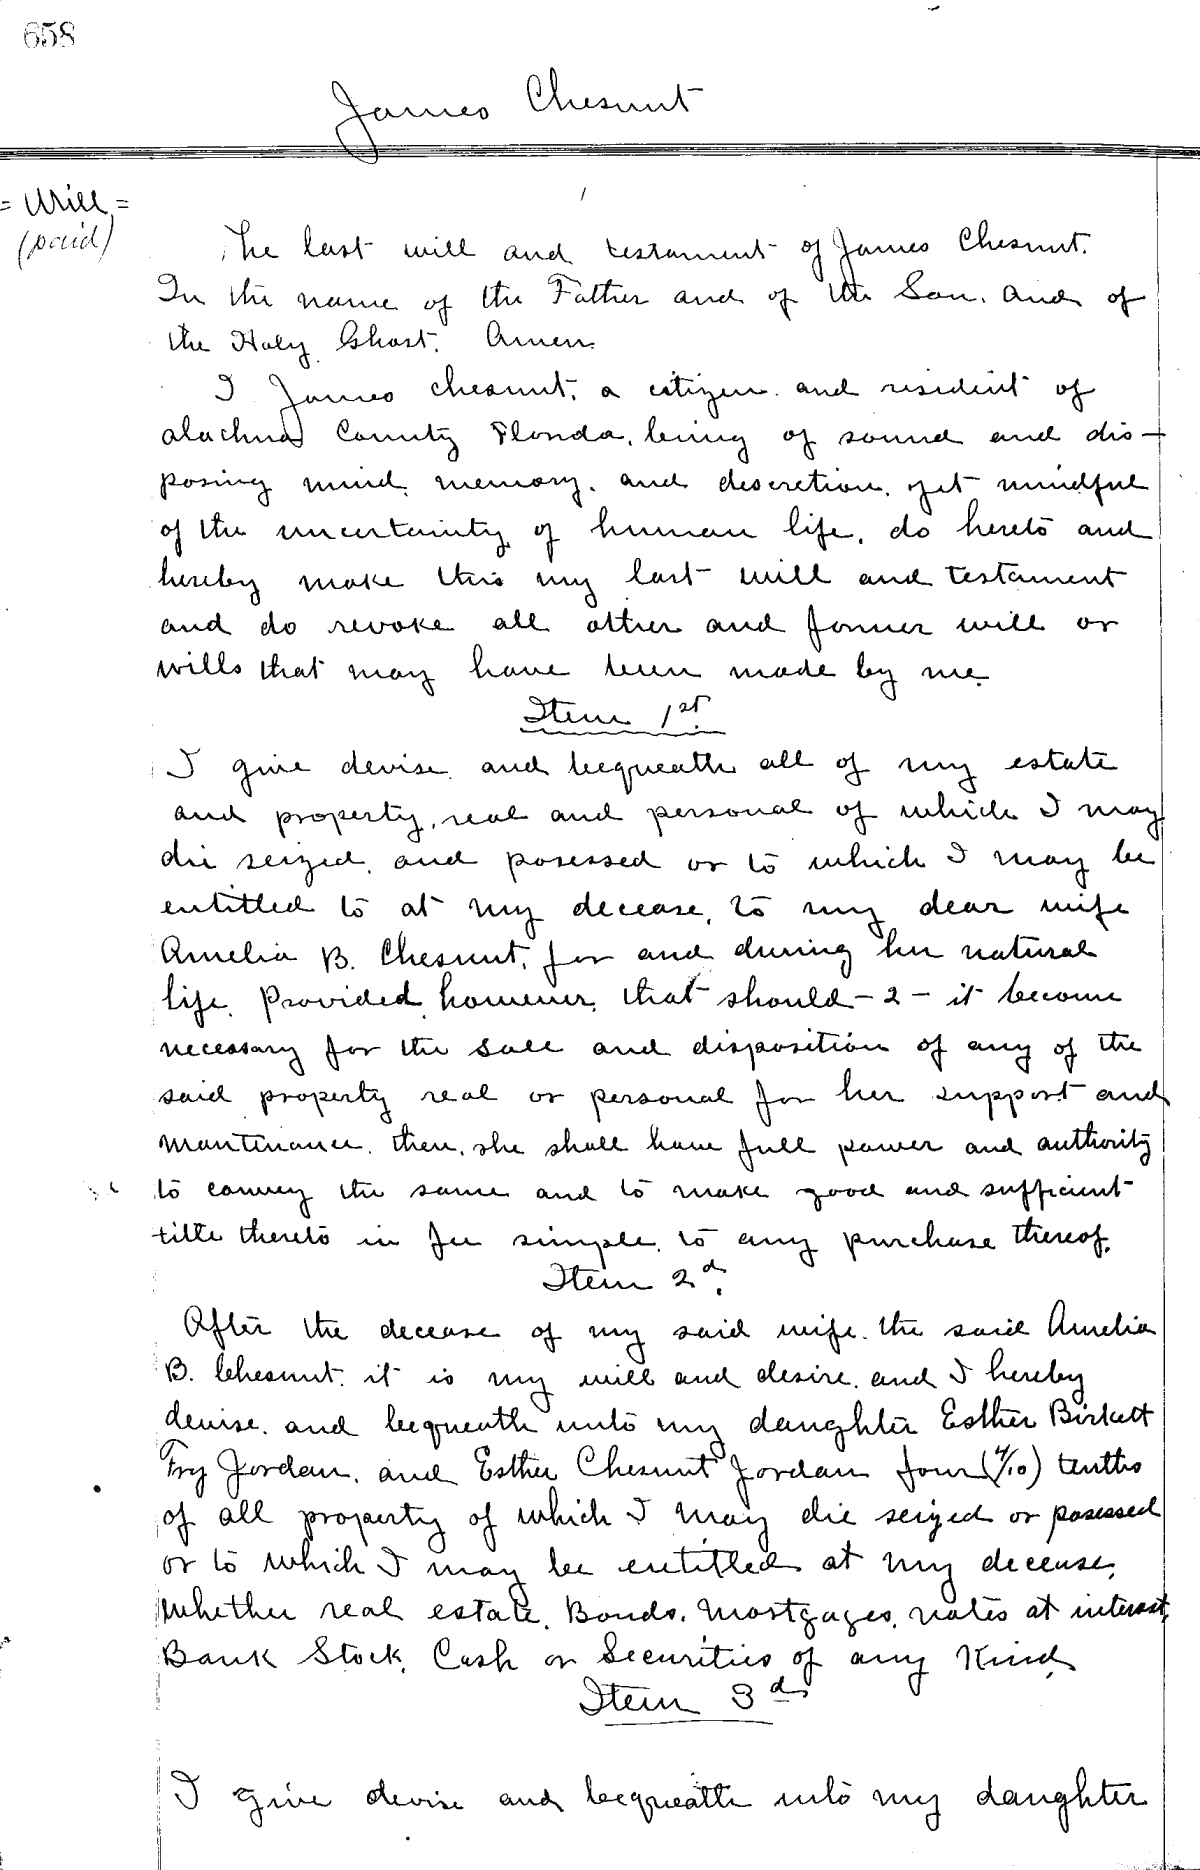 658
James Chesnut
= Will =
(paid)
The last will and testament of James Chesnut.
In the name of the Father and of the Son. and of
the Holy Ghost. Amen.
I James Chesnut, a citizen and resident of
Alachua County Florida, being of sound and dis-
posing mind, memory, and descretion, yet mindful
of the uncertainty of human life, do hereto and
hereby make this my last will and testament
and do revoke all other and former will or
wills that may have been made by me.
Item 1st.
I give devise and beequeath all of my estate
and property, real and personal of which I may
die seized, and posessed or to which I may be
entitled to at my decease, to my dear wife
Amelia B. Chesnut, for and during her natural
life. Provided however, that should - 2 - it become
necessary for the sale and disposition of any of the
said property real or personal for her support and
mantinance, then, she shall have full power and authority
to convey the same and to make good and sufficient
title thereto in fee simple, to any purchase thereof.
Item 2d.
After the decease of my said wife, the said Amelia
B. Chesnut, it is my will and desire, and I hereby
devise, and beequeath unto my daughter Esther Birkett
Fry Jordan, and Esther Chesnut Jordan four (4/10) tenths
of all property of which I may die seized or posessed
or to which I may be entitled at my decease,
whether real estate, Bonds, Mortgages, notes at interest,
Bank Stock, Cash or Securities of any Kind.
Item 3d
I give devise and beequeath unto my daughter